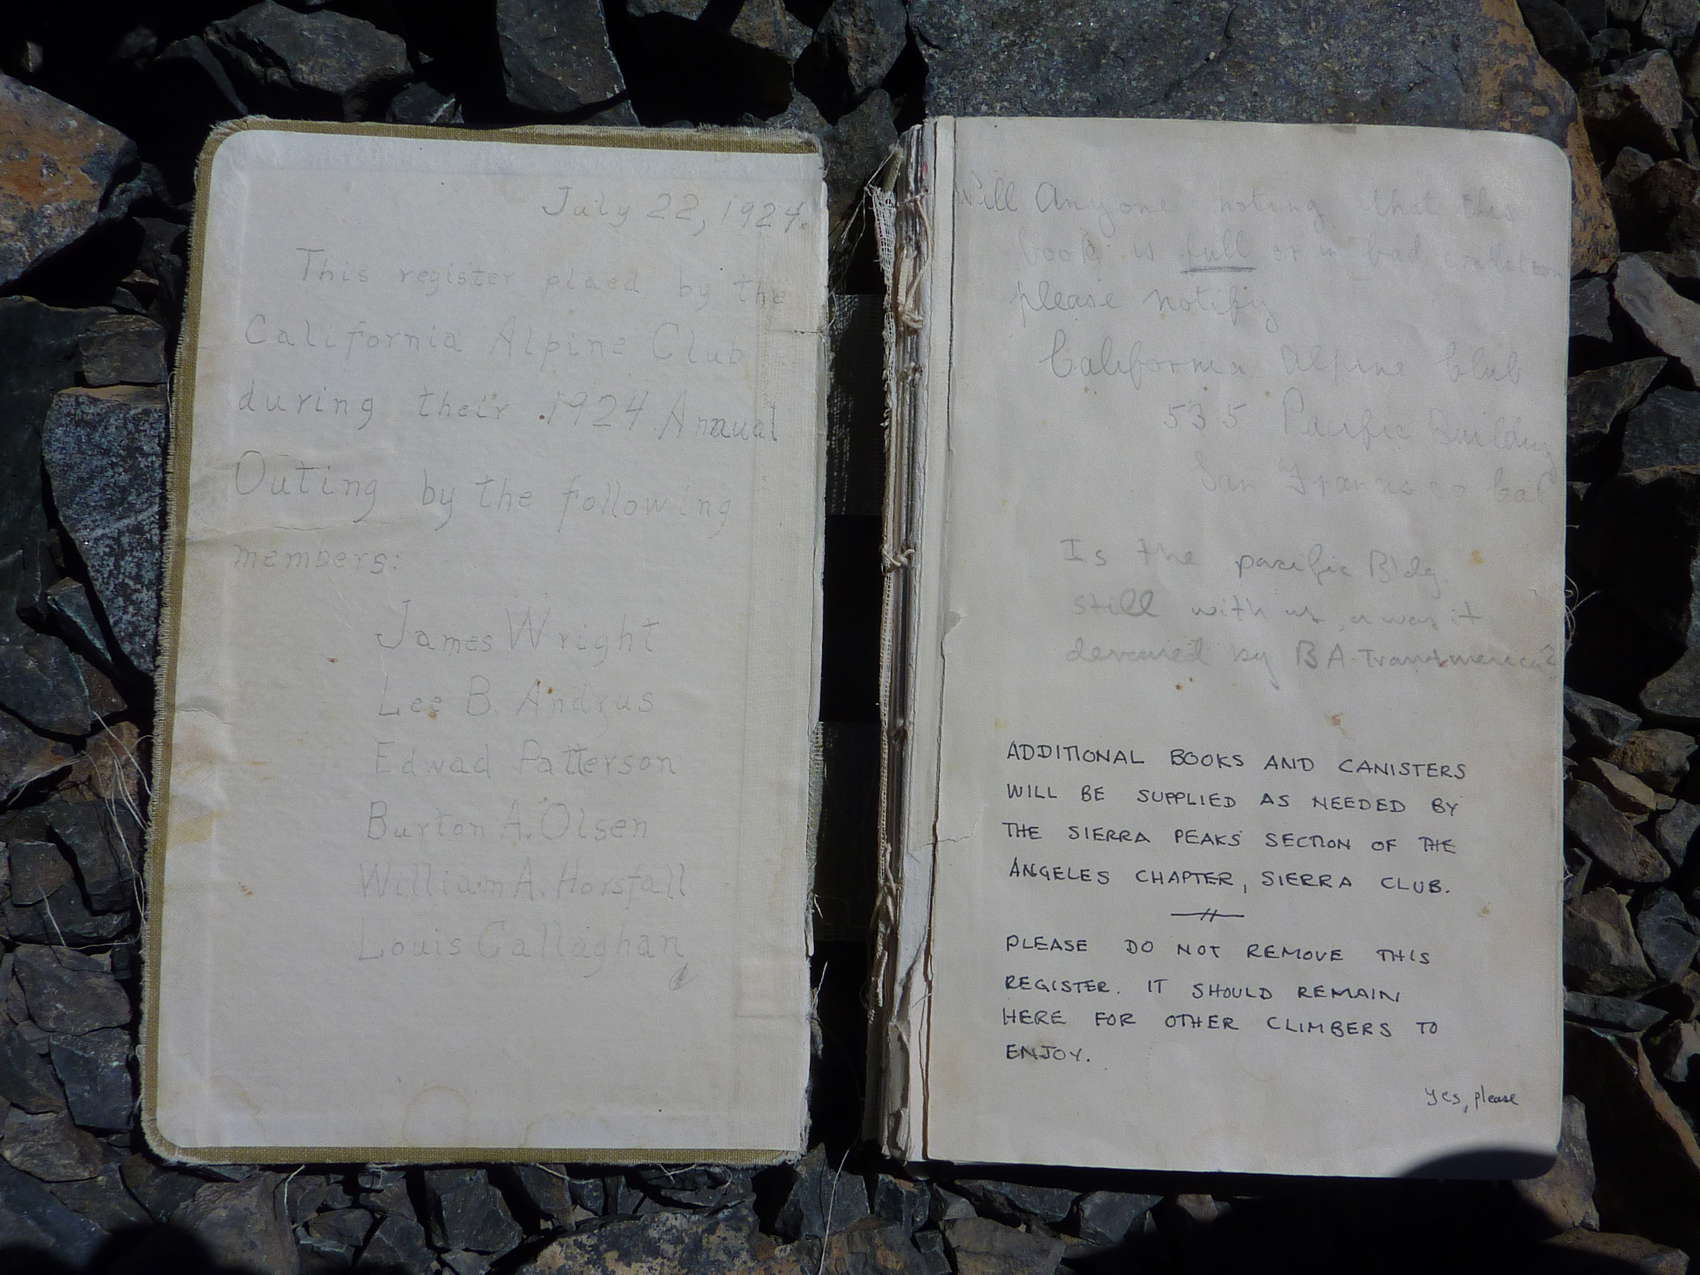 July 22, 1924.
This register placed by the
California Alpine Club
during their 1924 Annual
Outing by the following
members:
James Wright
Lee B. Andrus
Edwad Patterson
Burton A. Olsen
William A. Horsfall
Louis Callaghan
Will Anyone noting that this
book is full or in bad condition
please notify
California Alpine Club
535 Pacific Building
San Francisco Cal
Is the pacific Bldg
still with us, or was it
devoured by BA-Transamerica?
ADDITIONAL BOOKS AND CANISTERS
WILL BE SUPPLIED AS NEEDED BY
THE SIERRA PEAKS SECTION OF THE
ANGELES CHAPTER, SIERRA CLUB.
PLEASE DO NOT REMOVE THIS
REGISTER. IT SHOULD REMAIN
HERE FOR OTHER CLIMBERS TO
ENJOY.
yes, please